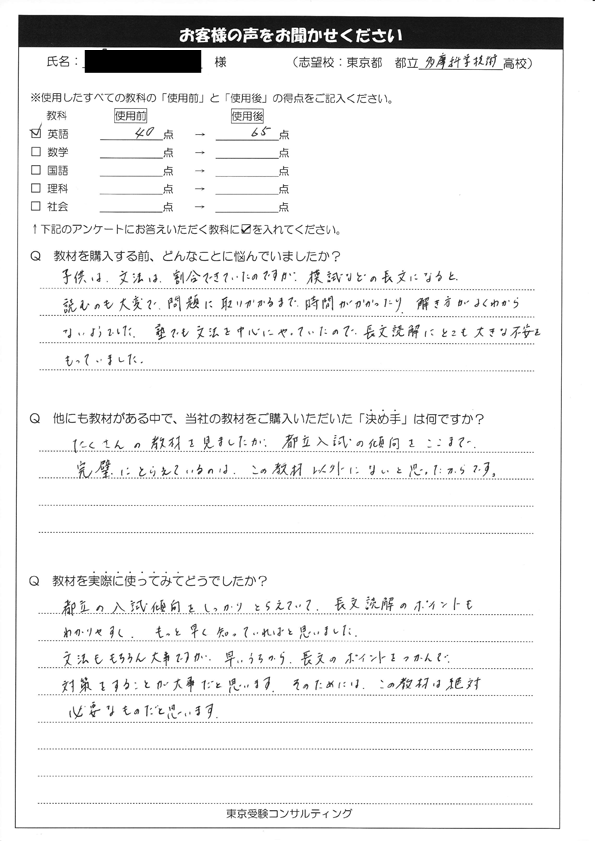 お客様の声をお聞かせください
氏名： 様 （志望校：東京都 都立 多摩科学技術 高校）
※使用したすべての教科の「使用前」と「使用後」の得点をご記入ください。
教科 使用前 使用後
☑ 英語 40 点 → 65 点
□ 数学 点 → 点
□ 国語 点 → 点
□ 理科 点 → 点
□ 社会 点 → 点
↑下記のアンケートにお答えいただく教科に☑を入れてください。
Q 教材を購入する前、どんなことに悩んでいましたか？
子供は、文法は、割合できていたのですが、模試などの長文になると、
読むのも大変で、問題に取りかかるまで、時間がかかったり、解き方がよくわから
ないようでした。塾でも文法を中心にやっていたので、長文読解にとても大きな不安を
もっていました。
Q 他にも教材がある中で、当社の教材をご購入いただいた「決め手」は何ですか？
たくさんの教材を見ましたが、都立入試の傾向をここまで、
完璧にとらえているのは、この教材以外にないと思ったからです。
Q 教材を実際に使ってみてどうでしたか？
都立の入試傾向をしっかりとらえていて、長文読解のポイントも
わかりやすく、もっと早く知っていればと思いました。
文法ももちろん大事ですが、早いうちから、長文のポイントをつかんで、
対策をすることが大事だと思います。そのためには、この教材は絶対
必要なものだと思います。
東京受験コンサルティング